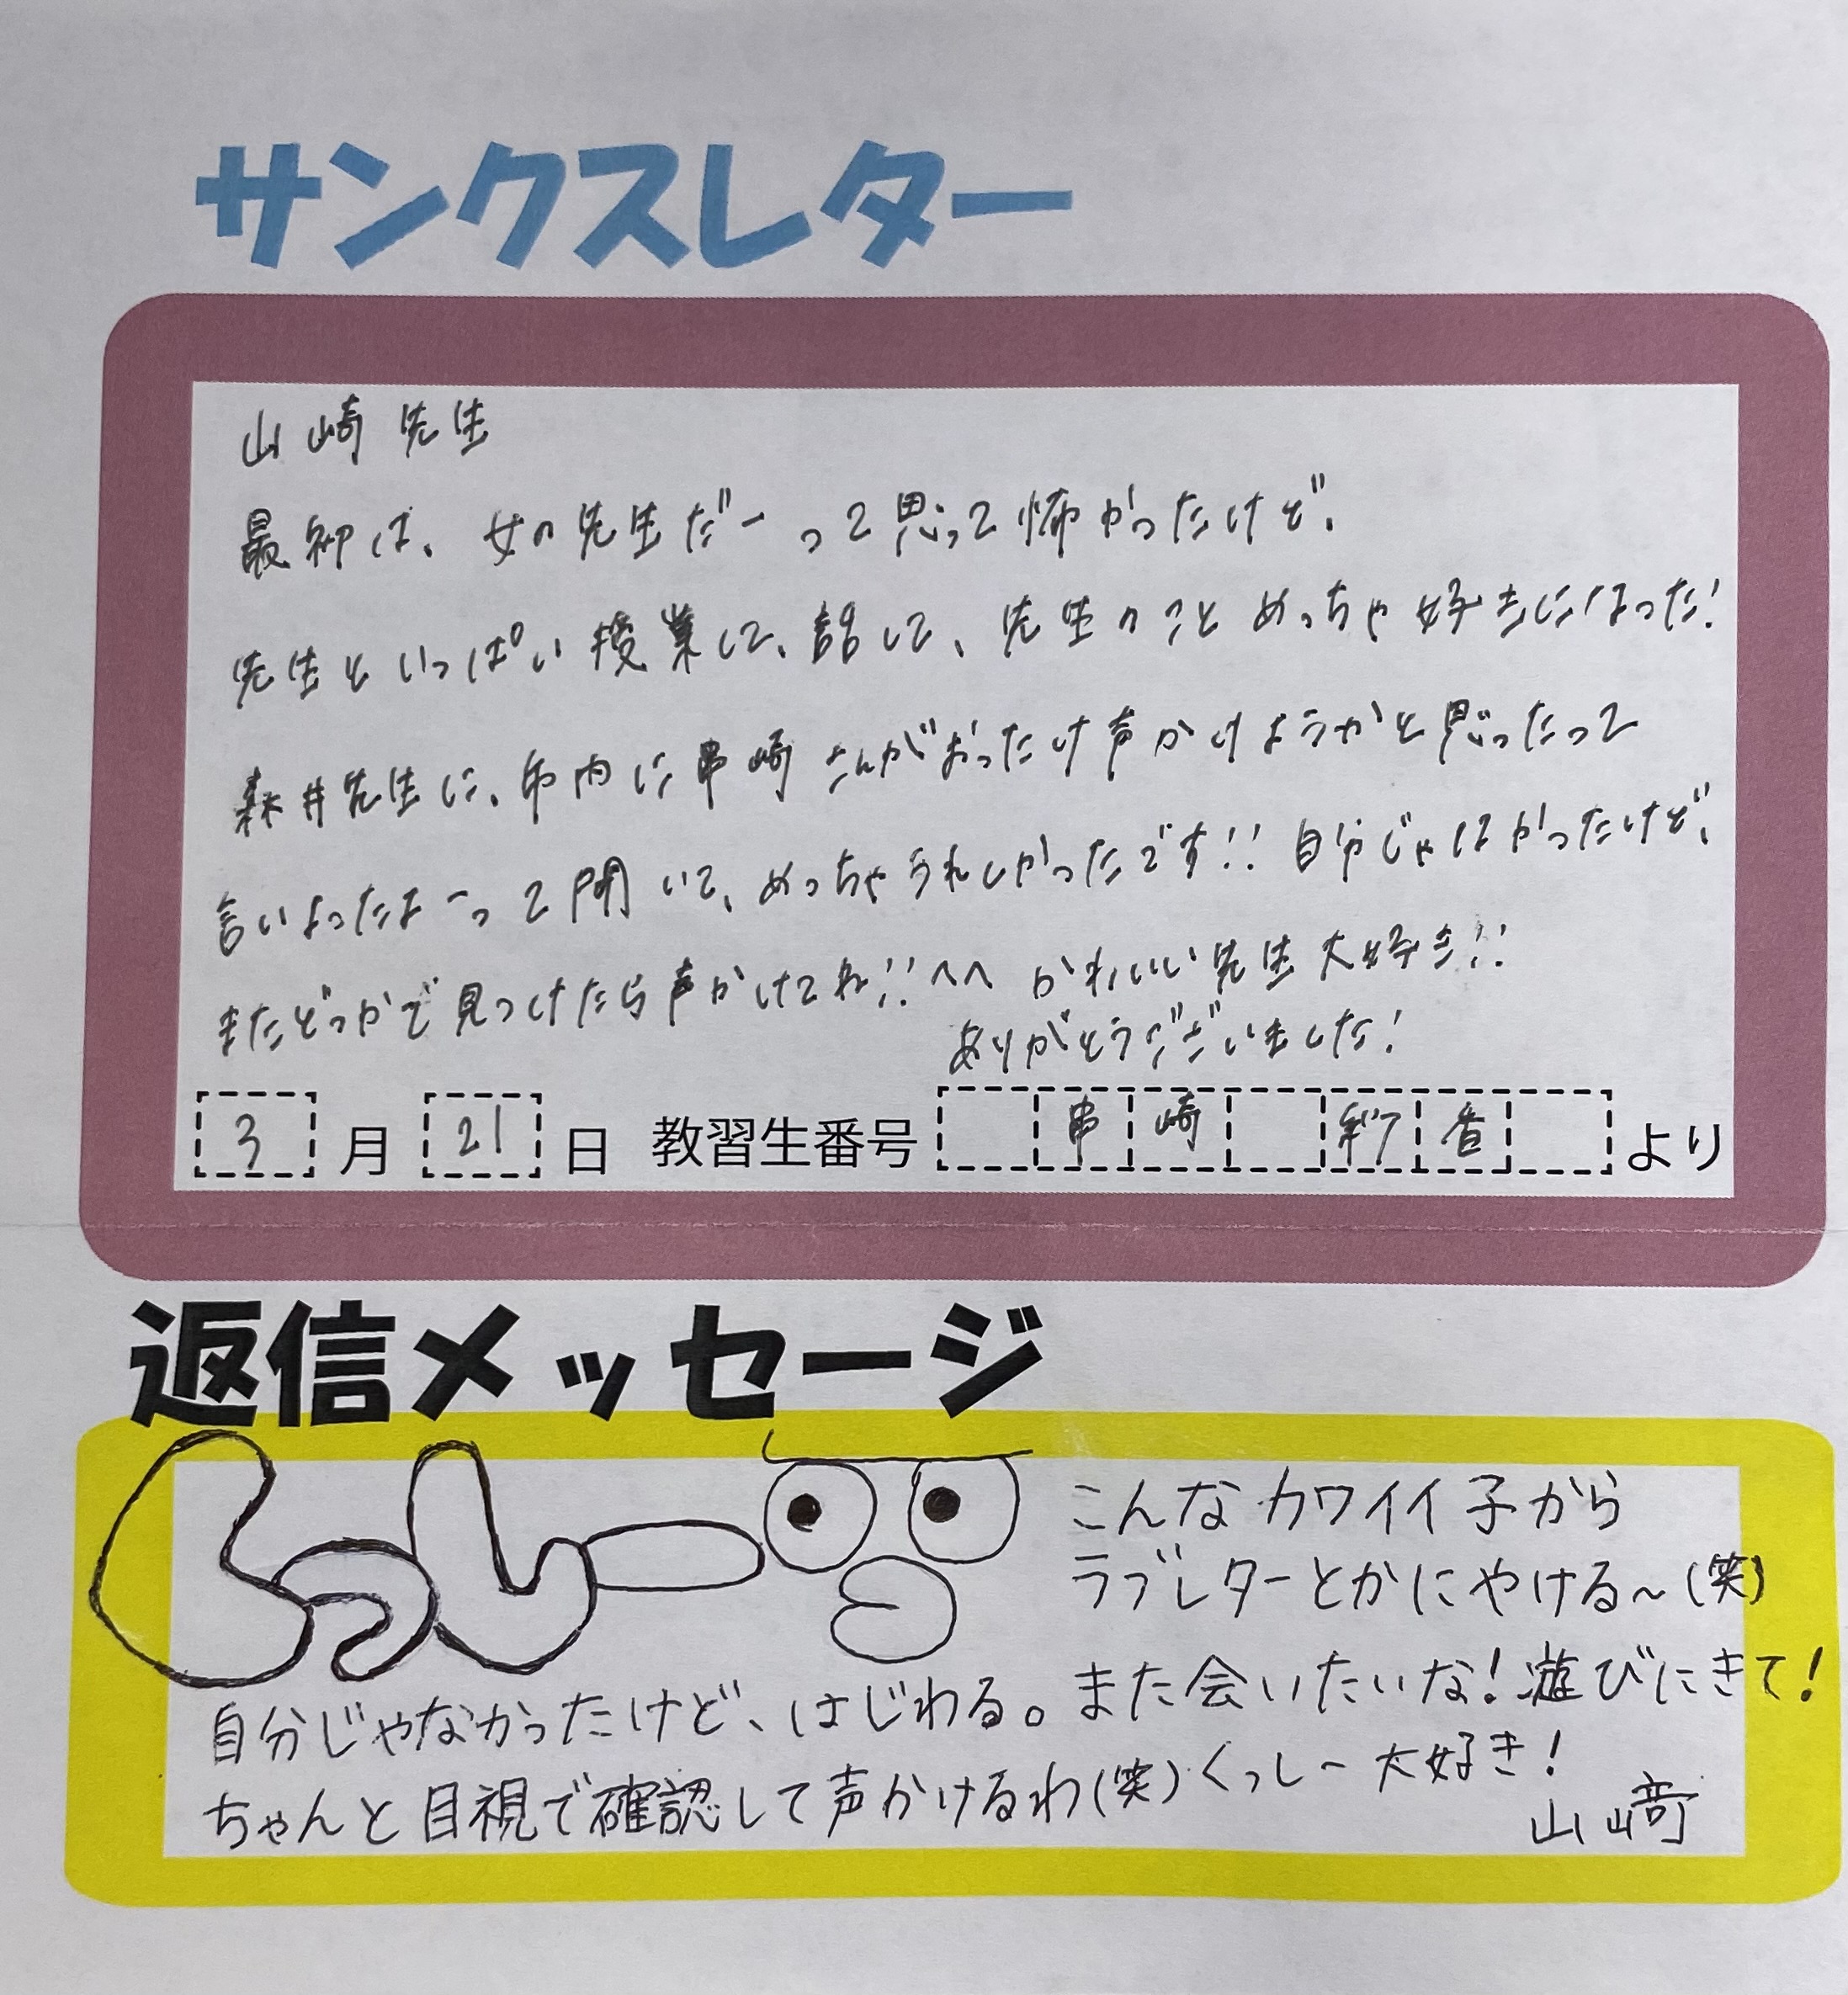 サンクスレター
山崎先生
最初は、女の先生だーって思って怖かったけど、
先生といっぱい授業して、話して、先生のことめっちゃ好きになった!
森井先生に、市内に串崎さんがおったけ声かけようかと思ったって
言いよったよーって聞いて、めっちゃうれしかったです!! 自分じゃなかったけど、
またどっかで見つけたら声かけてね!! へへ かわいい先生大好き!!
ありがとうございました!
3月21日 教習生番号 串崎 彩音 より
返信メッセージ
くっしー
こんなカワイイ子から
ラブレターとかにやける~(笑)
自分じゃなかったけど、はじわる。また会いたいな!遊びにきて!
ちゃんと目視で確認して声かけるわ(笑) くっしー大好き!
山﨑